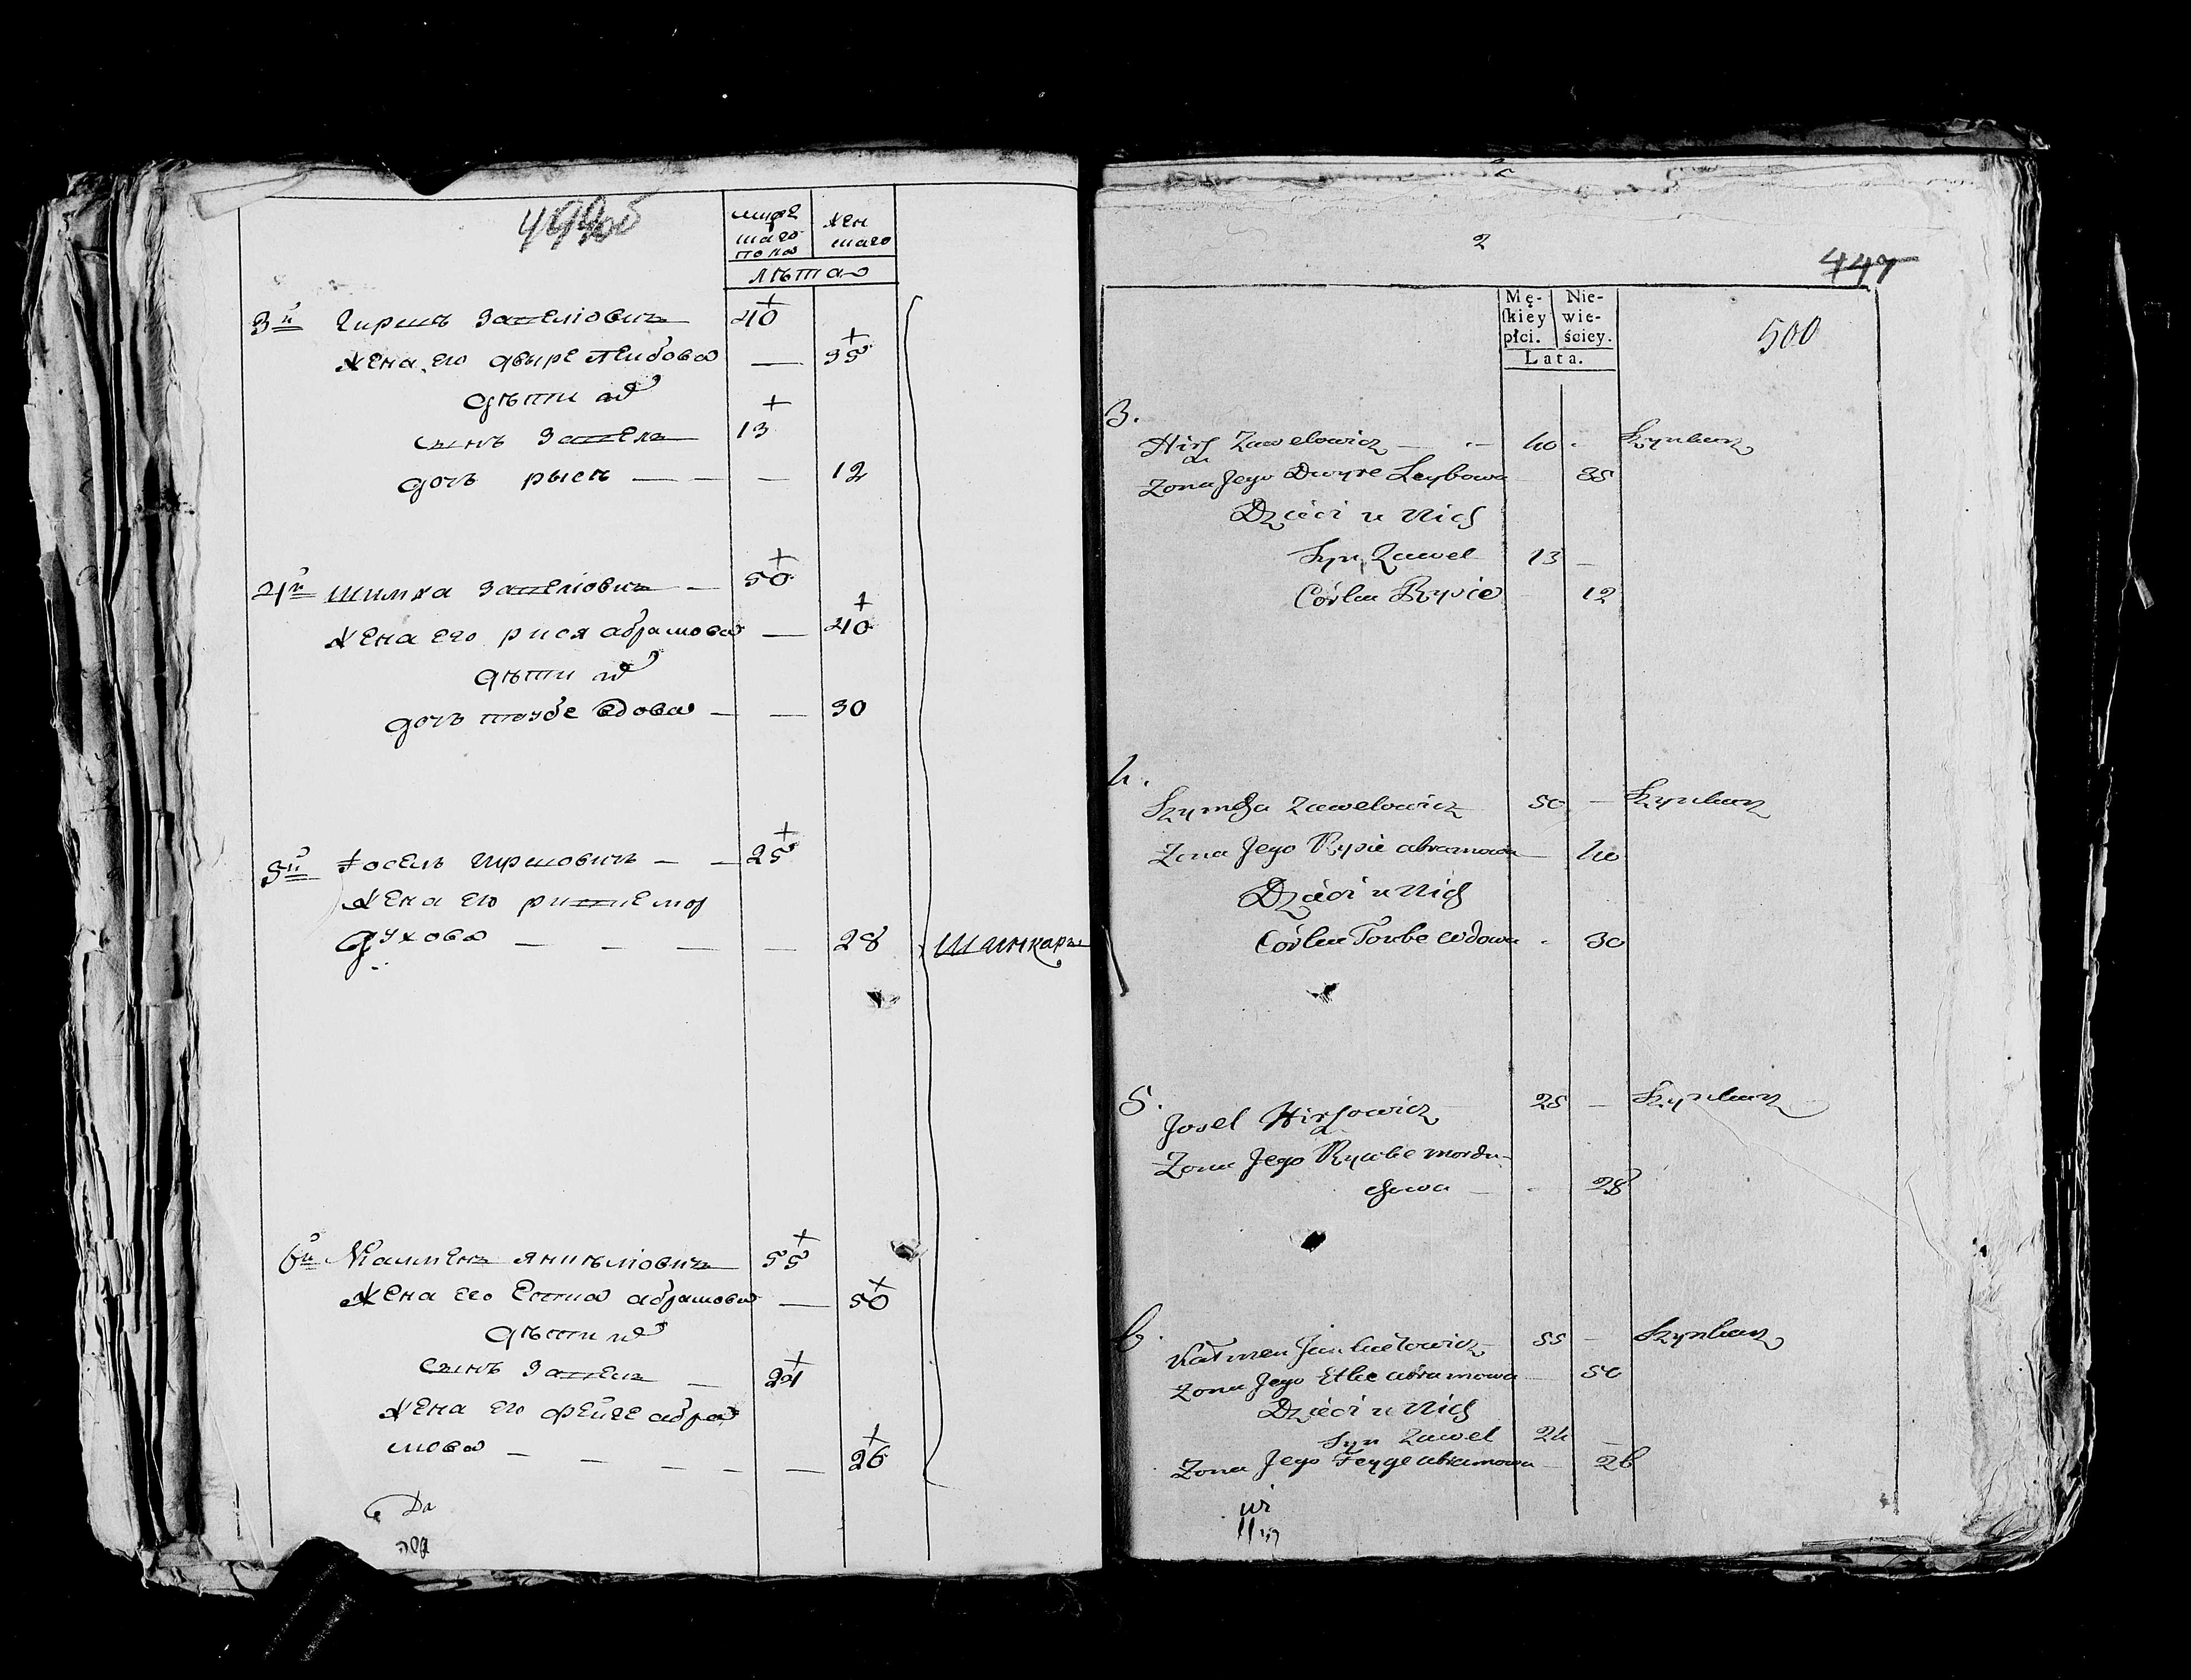 499об
муже
шаго
пола
жен
шаго
лѣта
3й Гиршъ Завеліовичъ 40
жена его двыре Лейбова — 35
дѣти их
сынъ Завель 13
дочь рысѣ — — — 12
4й Шимха Завеліовичъ — 50
жена его рися абрамова — 40
дѣти их
дочь тоубе вдова — — 30
5й Іосель Гиршовичъ — — 25
жена его ривие мор
духова — — — — 28 Шинкаръ
6й Калменъ Янкѣліовичъ 55
жена его Етка абрамова — 50
дѣти их
сынъ Завель — 24
жена его фейге абра
мова — — — — — — 26
2
447
500
Mę-
skiey
płci.
Nie-
wie-
ściey.
Lata.
3.
Hirsz Zawelowicz — — 40 - Szynkarz
Zona Jego Dwyre Leybowa 35
Dzieci u Nich
Syn Zawel 13 —
Córka Rysie 12
4.
Szymcha Zawelowicz 50 — Szynkarz
Zona Jego Rysie abramowa — 40
Dzieci u Nich
Córka Toube wdowa - 30
5.
Josel Hirszowicz 25 — Szynkarz
Zona Jego Rywke mordu-
chowa — - 28
6.
Kałmen Jankielowicz 55 — Szynkarz
Zona Jego Etke abramowa 50
Dzieci u Nich
Syn Zawel 24 —
Zona Jego Feyge abramowa — 26